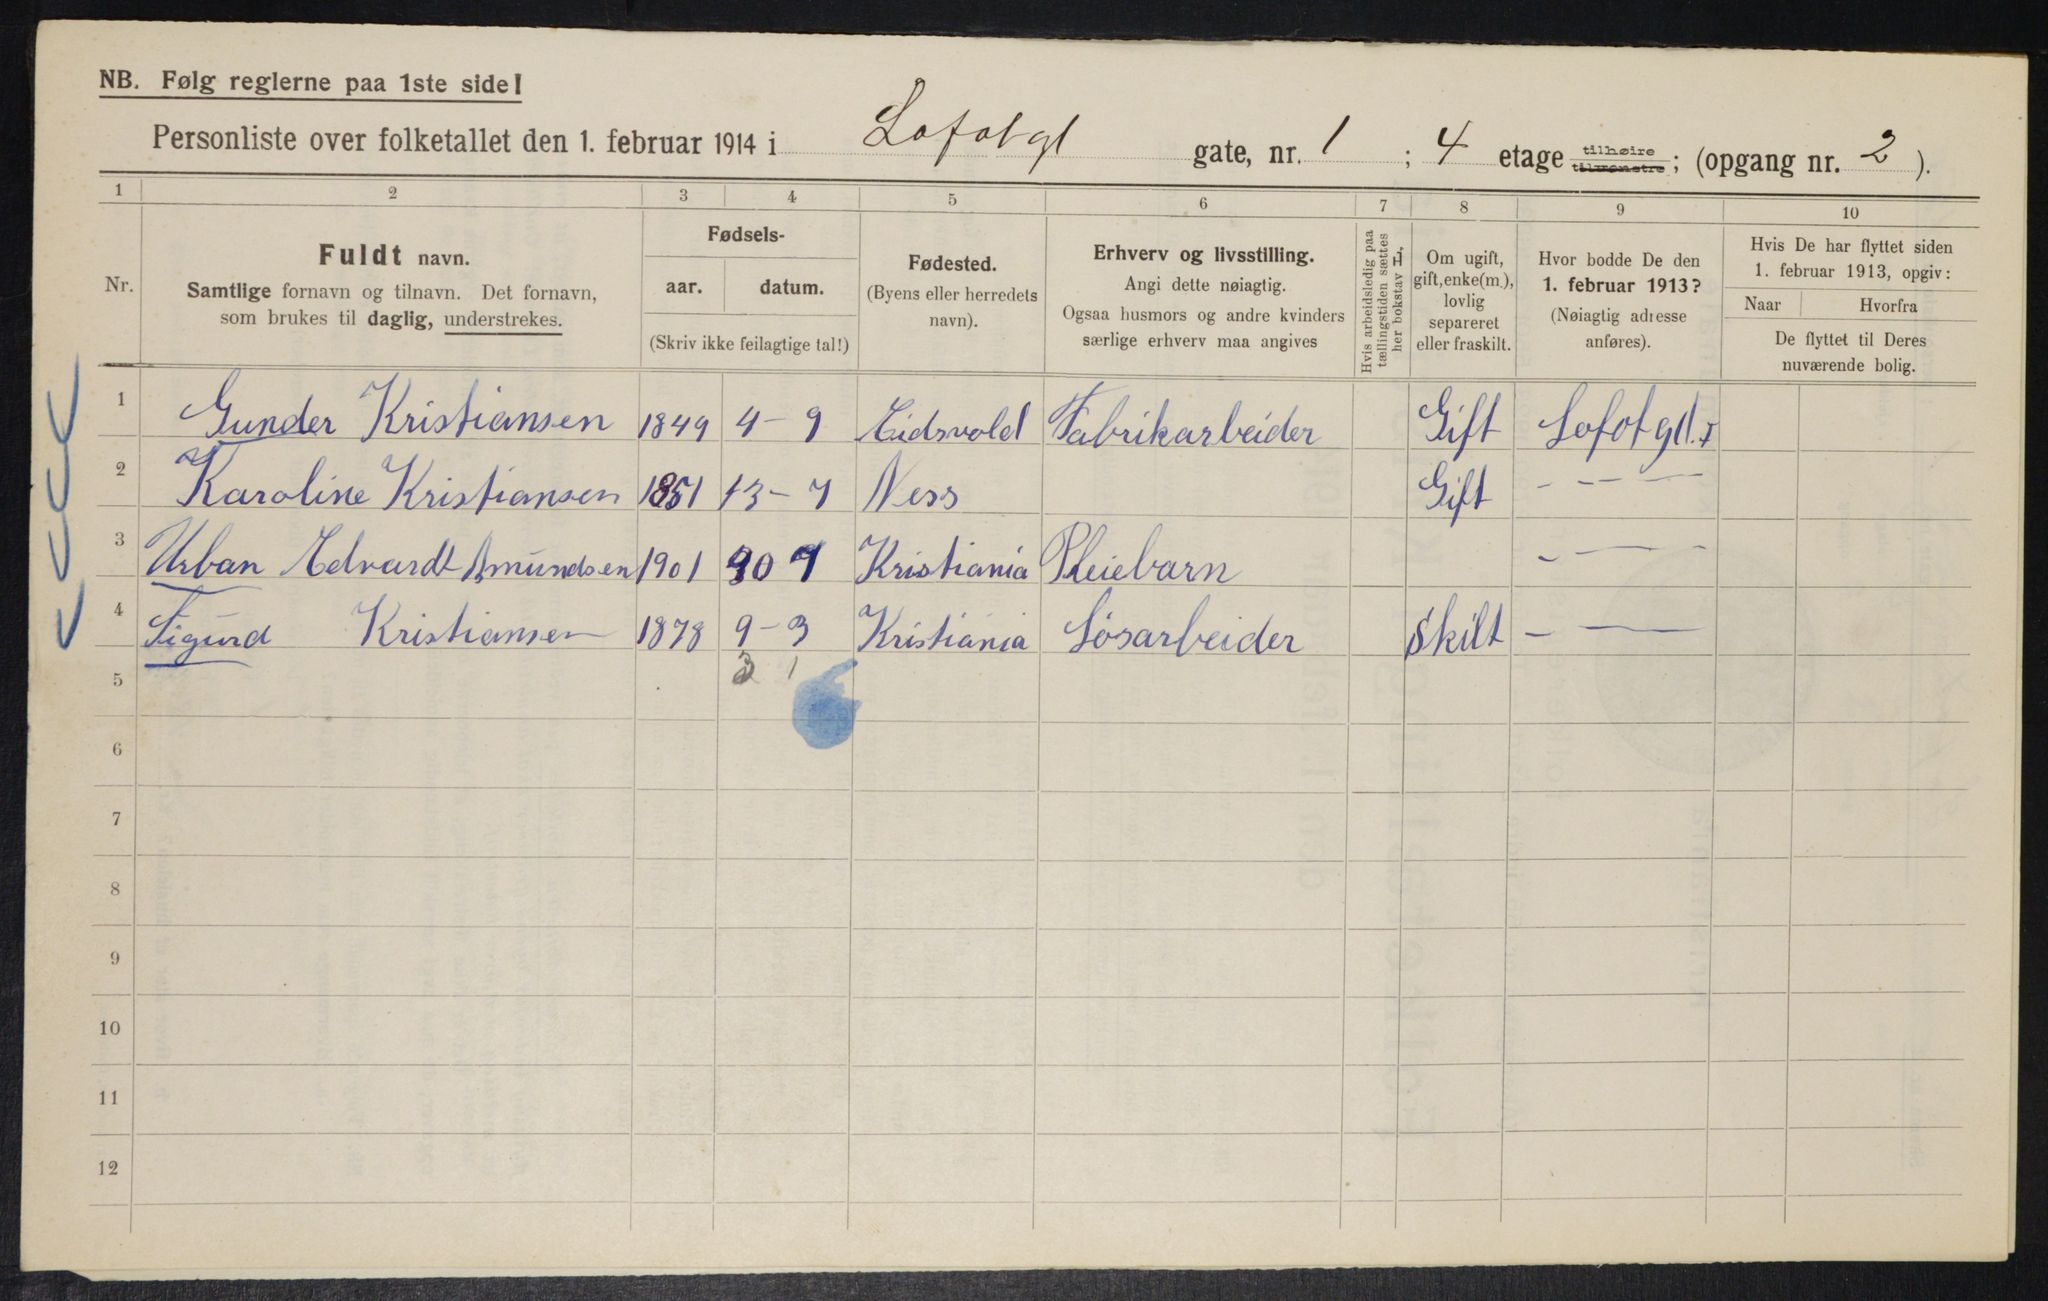 NB. Følg reglerne paa 1ste side!
Personliste over folketallet den 1. februar 1914 i Lofotgt gate, nr. 1 ; 4 etage tilhøire tilvenstre; (opgang nr. 2 ).
1 2 3 4 5 6 7 8 9 10
Nr.
Fuldt navn.
Samtlige fornavn og tilnavn. Det fornavn,
som brukes til daglig, understrekes.
Fødsels-
aar. datum.
(Skriv ikke feilagtige tal!)
Fødested.
(Byens eller herredets
navn).
Erhverv og livsstilling.
Angi dette nøiagtig.
Ogsaa husmors og andre kvinders
særlige erhverv maa angives
Hvis arbeidsledig paa
tællingstiden sættes
her bokstav L,
Om ugift,
gift, enke(m.),
lovlig
separeret
eller fraskilt.
Hvor bodde De den
1. februar 1913?
(Nøiagtig adresse
anføres).
Hvis De har flyttet siden
1. februar 1913, opgiv:
Naar Hvorfra
De flyttet til Deres
nuværende bolig.
1 Gunder Kristiansen 1849 4-9 Eidsvold Fabrikarbeider Gift Lofotgt. 1
2 Karoline Kristiansen 1851 13-7 Ness Gift - - -
3 Urban Edvardt Amundsen 1901 Kristiania Pleiebarn - -
4 Sigurd Kristiansen 1878 9-3 Kristiania Løsarbeider Skilt - -
3 1
5
6
7
8
9
10
11
12